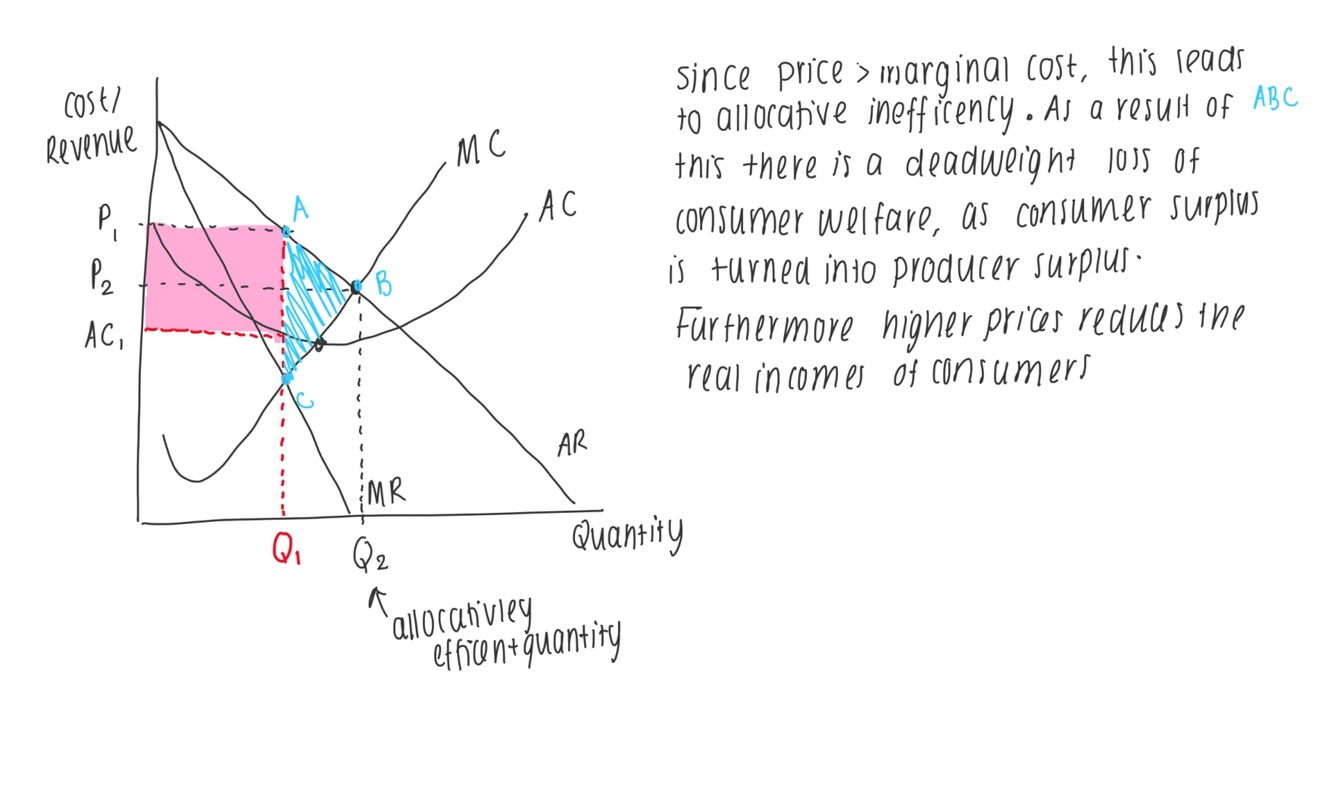 Cost/
Revenue
P1
P2
AC1
A
B
C
MC
AC
AR
MR
Q1
Q2
Quantity
allocativley
efficent quantity
since price > marginal cost, this leads
to allocative inefficency. As a result of ABC
this there is a deadweight loss of
consumer welfare, as consumer surplus
is turned into producer surplus.
Furthermore higher prices reduces the
real incomes of consumers